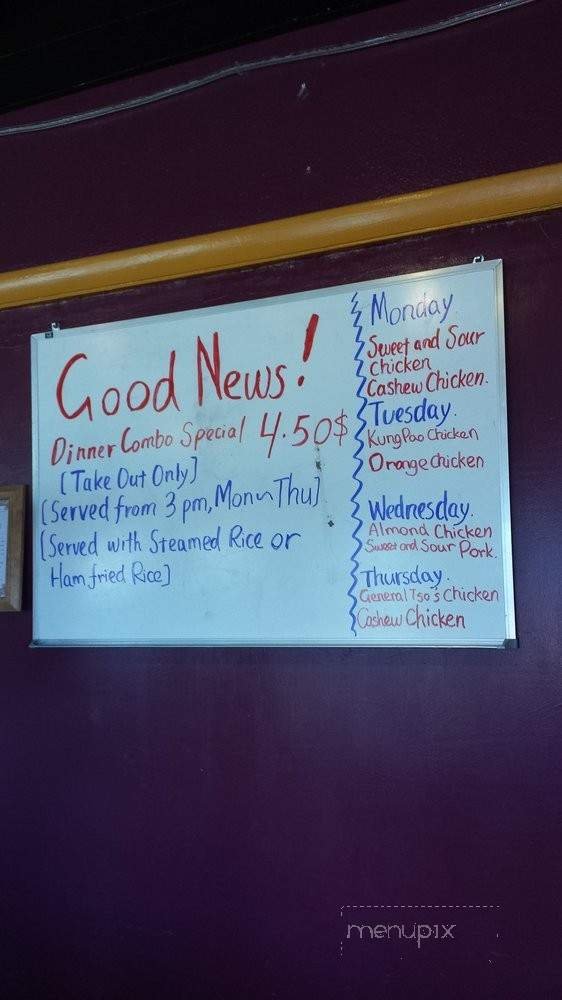 Good News!
Dinner Combo Special 4.50$
[Take Out Only]
[Served from 3 pm, Mon~Thu]
[Served with Steamed Rice or
Ham fried Rice]
Monday
Sweet and Sour
Chicken
Cashew Chicken.
Tuesday.
Kung Pao Chicken
Orange Chicken
Wednesday.
Almond Chicken
Sweet and Sour Pork.
Thursday.
General Tso's Chicken
Cashew Chicken
menupix